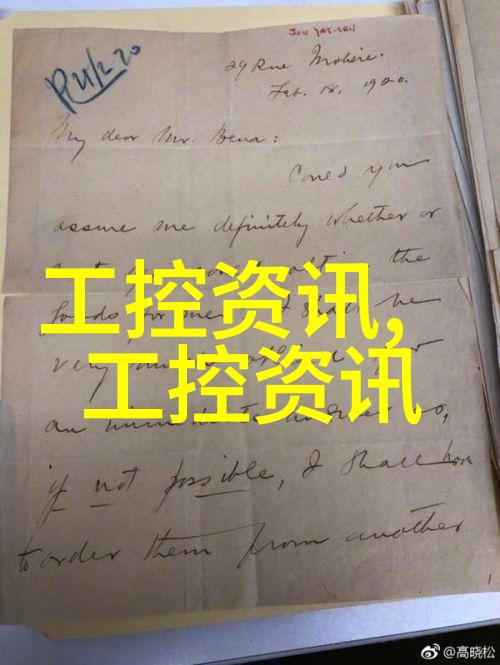 SUN YAT-SEN
R 4/2-20
29 Rue Molière.
Feb. 18, 1920.
My dear Mr. Bena:
Could you
assure me definitely whether or
the
goods for me. I shall be
very
an
if not possible, I shall have
to order them from another
工控资讯,
工控资讯
@高晓松